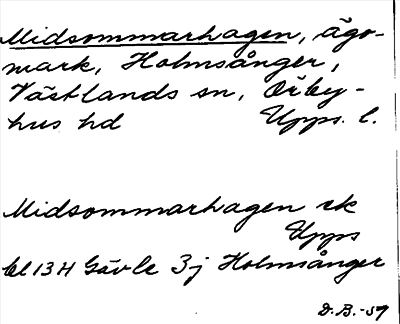 Midsommarhagen, ägo-
mark, Holmsånger,
Västlands sn, Örby-
hus hd Upps. l.
Midsommarhagen ek
Upps
bl 13H Gävle 3j Holmsånger
D.B.-57